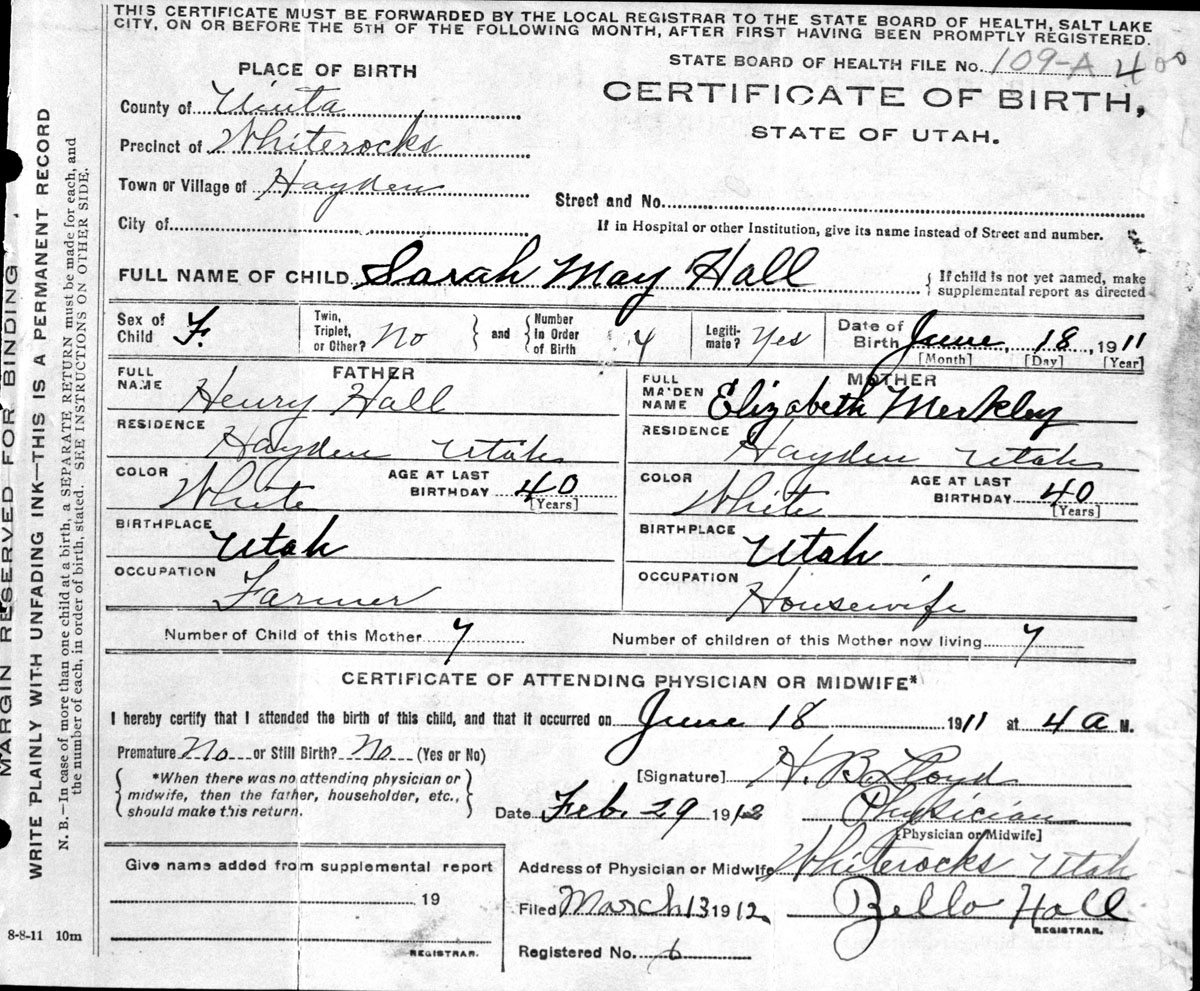 THIS CERTIFICATE MUST BE FORWARDED BY THE LOCAL REGISTRAR TO THE STATE BOARD OF HEALTH, SALT LAKE
CITY, ON OR BEFORE THE 5TH OF THE FOLLOWING MONTH, AFTER FIRST HAVING BEEN PROMPTLY REGISTERED.
STATE BOARD OF HEALTH FILE No. 109-A 400
PLACE OF BIRTH
CERTIFICATE OF BIRTH,
STATE OF UTAH.
County of Uinta
Precinct of Whiterocks
Town or Village of Hayden
Street and No.
City of
If in Hospital or other Institution, give its name instead of Street and number.
FULL NAME OF CHILD Sarah May Hall
{ If child is not yet named, make
supplemental report as directed
Sex of Child F. Twin, Triplet, or Other? No } and { Number in Order of Birth 4 Legitimate? Yes Date of Birth June, 18, 1911
[Month] [Day] [Year]
FATHER
FULL NAME Henry Hall
RESIDENCE
Hayden Utah
COLOR White AGE AT LAST BIRTHDAY 40
[Years]
BIRTHPLACE
Utah
OCCUPATION
Farmer
MOTHER
FULL MAIDEN NAME Elizabeth Merkley
RESIDENCE
Hayden Utah
COLOR White AGE AT LAST BIRTHDAY 40
[Years]
BIRTHPLACE
Utah
OCCUPATION
Housewife
Number of Child of this Mother 7 Number of children of this Mother now living 7
CERTIFICATE OF ATTENDING PHYSICIAN OR MIDWIFE*
I hereby certify that I attended the birth of this child, and that it occurred on June 18 1911 at 4 a M.
Premature No or Still Birth? No (Yes or No)
{ *When there was no attending physician or
midwife, then the father, householder, etc.,
should make this return. }
[Signature] H. B. Lloyd
Date Feb. 29 1912 Physician
[Physician or Midwife]
Give name added from supplemental report
19
REGISTRAR.
Address of Physician or Midwife Whiterocks Utah
Filed March 13 1912 Bello Hall
REGISTRAR.
Registered No. 6
8-8-11 10m
MARGIN RESERVED FOR BINDING
WRITE PLAINLY WITH UNFADING INK—THIS IS A PERMANENT RECORD
N. B.—In case of more than one child at a birth, a SEPARATE RETURN must be made for each, and
the number of each, in order of birth, stated. SEE INSTRUCTIONS ON OTHER SIDE.